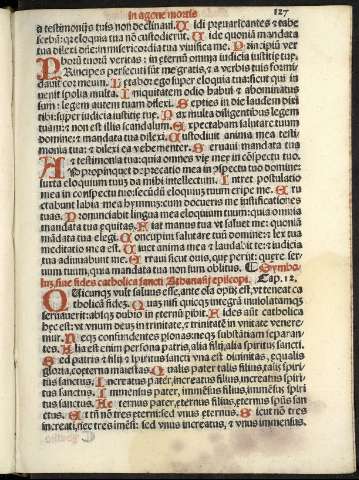 in agone mortis
127
a testimonijs tuis non declinaui. Uidi preuaricantes & tabe
scebã: q̃ eloquia tua nõ custodierũt. Uide quoniã mandata
tua dilexi dñe: in misericordia tua viuifica me. Principiũ ver
boꝝ tuoꝝ veritas: in eternũ omnia iudicia iustitie tue.
PRincipes persecuti sũt me gratis, & a verbis tuis formi
dauit cor meum. Letabor ego super eloquia tua: sicut qui in
uenit spolia multa. Iniquitatem odio habui & abominatus
sum: legem autem tuam dilexi. Septies in die laudem dixi
tibi: super iudicia iustitie tue. Pax multa diligentibus legem
tuam: & non est illis scandalum. Expectabam salutare tuum
domine: & mandata tua dilexi. Custodiuit anima mea testi
monia tua: & dilexi ea vehementer. Seruaui mandata tua
& testimonia tua: quia omnes vię męe in cõspectu tuo.
APpropinquet deprecatio mea in cõspectu tuo domine:
iuxta eloquium tuũ da mihi intellectum. Intret postulatio
mea in conspectu tuo: secũdũ eloquium tuum eripe me. Eru
ctabunt labia mea hymnum: cum docueris me iustificationes
tuas. Pronunciabit lingua mea eloquium tuum: quia omnia
mandata tua equitas. Fiat manus tua vt saluet me: quoniã
mãdata tua elegi. Concupiui salutare tuũ domine: & lex tua
meditatio mea est. Uiuet anima mea & laudabit te: & iudicia
tua adiuuabunt me. Erraui sicut ouis, que perijt: quęre ser-
uum tuum, quia mandata tua non sum oblitus. Symbo-
lum, siue fides catholica sancti Athanasij episcopi. Cap. 12.
QUicunque vult saluus esse, ante oĩa opus est, vt teneat ca
tholicã fidem. Quam nisi quisque integrã inuiolatamque
seruauerit: absque dubio in eternũ peribit. Fides aũt catholica
hęc est: vt vnum deum in trinitate, & trinitatẽ in vnitate venere-
mur. Neque confundentes psonas: neque substãtiam separan-
tes. Alia est enim persona patris, alia filij, alia spiritus sancti.
Sed patris & filij & spiritus sancti vna est diuinitas, ęqualis
gloria, coęterna maiestas. Qualis pater talis filius, talis spiri-
tus sanctus. Increatus pater, increatus filius, increatus spiri-
tus sanctus. Immensus pater, immẽsus filius, immẽsus spiri
tus sanctus. Aeternus pater, ęternus filius, ęternus spũs san
ctus. Et tñ nõ tres ęterni: sed vnus ęternus. Sicut nõ tres
increati, nec tres imẽsi: sed vnus increatus, & vnus immensus.